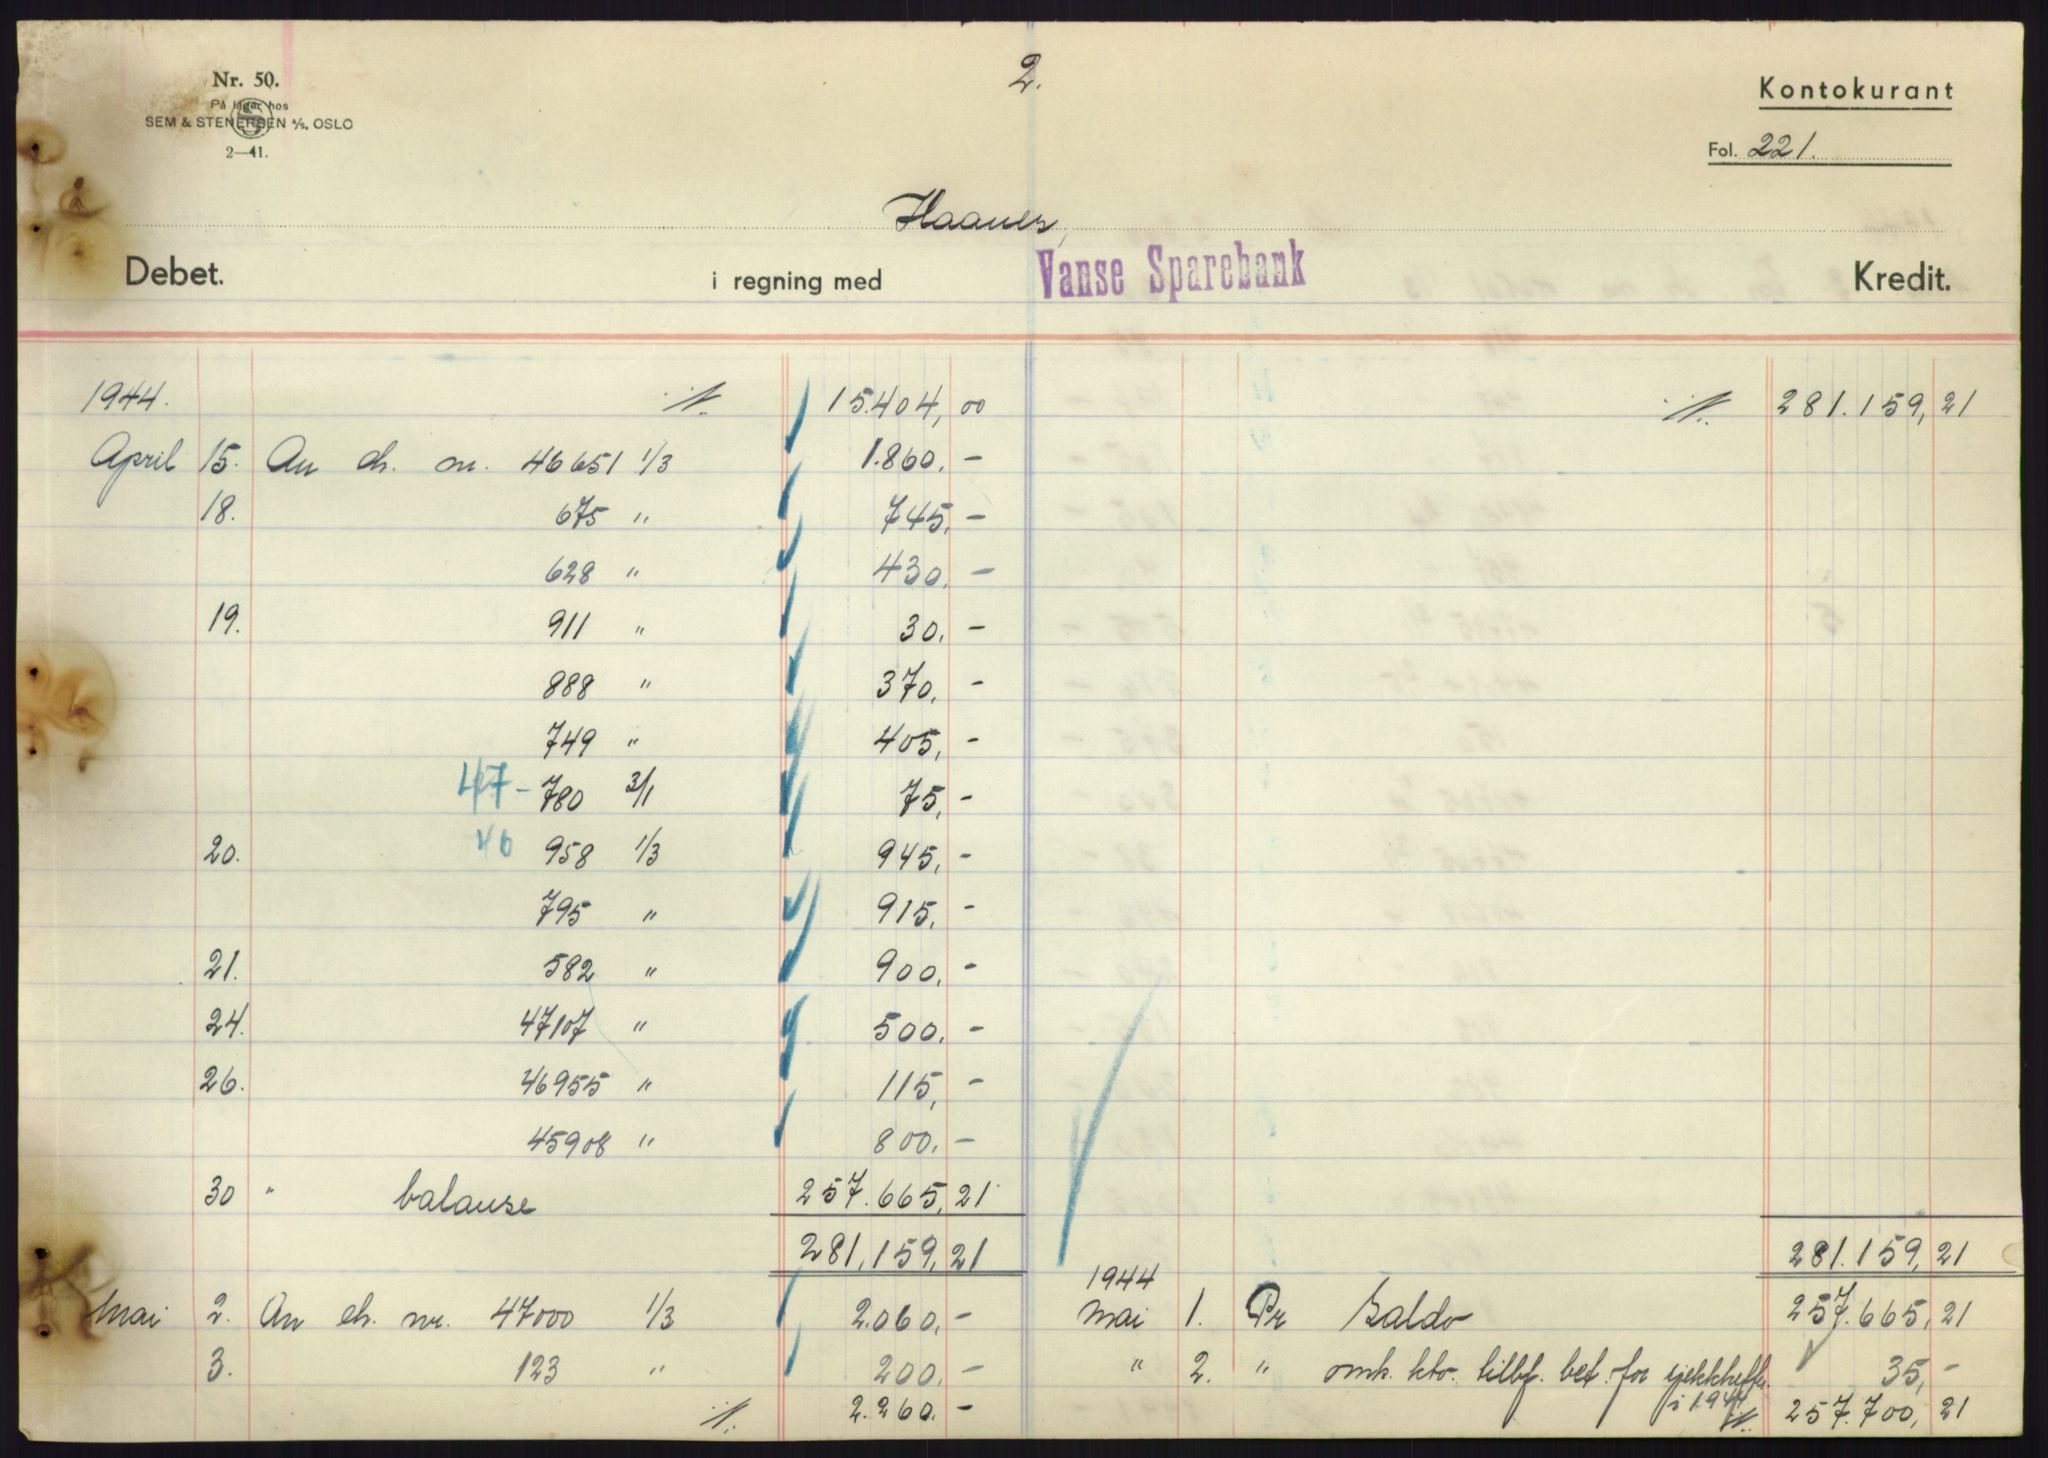 Nr. 50.
På lager hos
SEM & STENERSEN A/S, OSLO
2—41.
2.
Kontokurant
Fol. 221.
Haanes,
Debet. i regning med Vanse Sparebank Kredit.
1944. 15.404,00 281.159,21
April 15. An ch. nr. 46651 1/3 1.860.-
18. 675 " 745,-
628 " 430.-
19. 911 " 30.-
888 " 370.-
749 " 405,-
47- 780 3/1 75,-
20. 46 958 1/3 945,-
795 " 915.-
21. 582 " 900.-
24. 47107 " 500.-
26. 46955 " 115,-
45908 " 800.-
30 " balanse 257.665,21
281.159,21 281.159,21
1944
Mai 2. An ch. nr. 47000 1/3 2.060.- Mai 1. Pr Saldo 257.665,21
3. 123 " 200.- " 2. " omk. kto. tilbf. bet. for sjekkhefter 35,-
i 1944
2.260.- 257.700,21